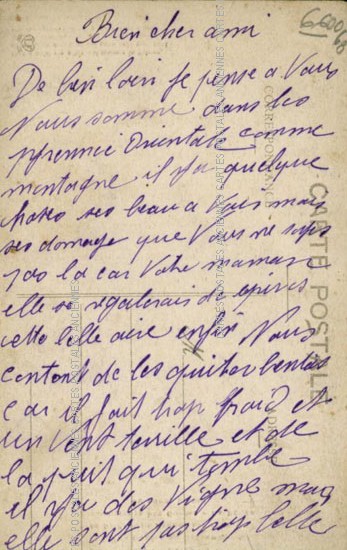 Bien cher ami
De bien loin je pense a Vous
Nous somme dans les
pyrennie Orientale comme
montagne il y a quelque
choses ses beau a Vois mais
ses domage que Vous ne soyes
pas la car Votre maman
elle se regalerais de
cette belle aire enfin Nous
contont de les quiter bentos
car il fait trop froid et
un Vent terrille et de
la pluit qui tombe
il y a des Vigne mais
elle sont pas trop belle
CARTE POSTALE
CORRESPONDANCE
CARTES POSTALES ANCIENNES